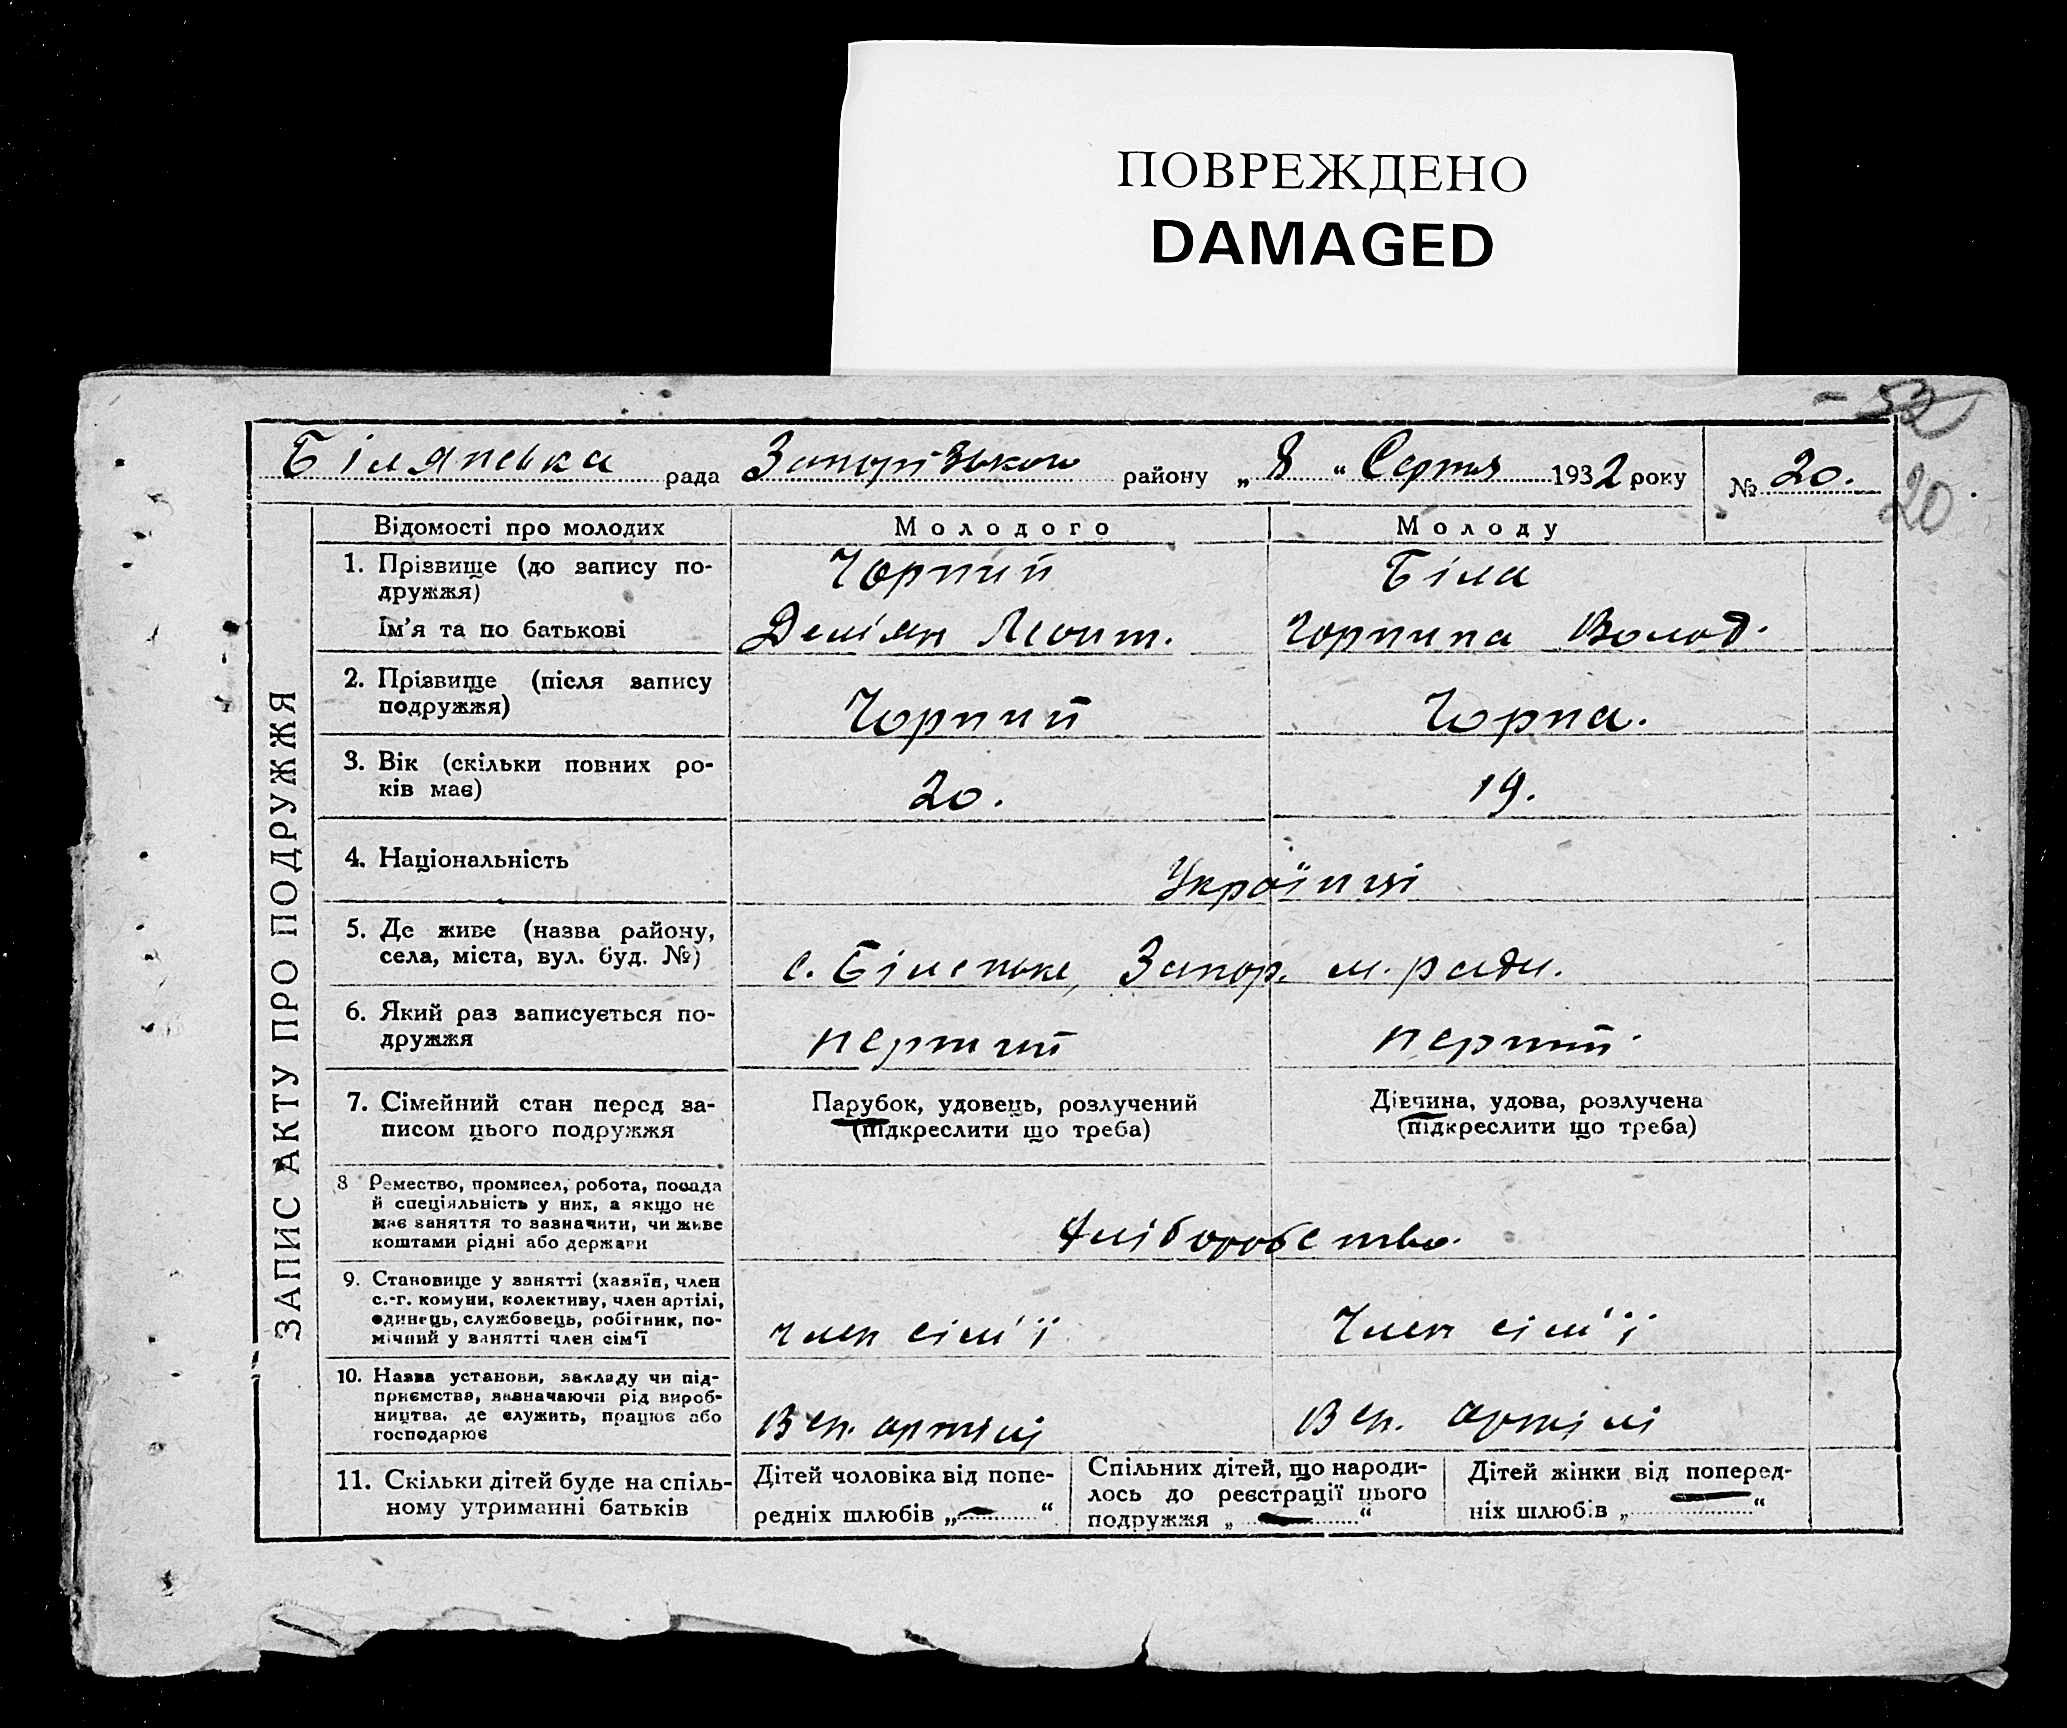 ПОВРЕЖДЕНО
DAMAGED
Білянська рада Запорізького району „ 8 “ Серпня 1932 року № 20.
20
ЗАПИС АКТУ ПРО ПОДРУЖЖЯ
Відомості про молодих Молодого Молоду
1. Прізвище (до запису по-
дружжя) Чорний Біла
Ім’я та по батькові Демян Леонт. Горпина Волод.
2. Прізвище (після запису
подружжя) Чорний Чорна.
3. Вік (скільки повних ро-
ків має) 20. 19.
4. Національність Українці
5. Де живе (назва району,
села, міста, вул. буд. №) с. Біленьке, Запор. м. ради.
6. Який раз записується по-
дружжя перший перший
7. Сімейний стан перед за-
писом цього подружжя
Парубок, удовець, розлучений
(підкреслити що треба)
Дівчина, удова, розлучена
(підкреслити що треба)
8 Ремество, промисел, робота, посада
й спеціяльність у них, а якщо не
має заняття то зазначити, чи живе
коштами рідні або держави
Хліборобство.
9. Становище у занятті (хазяїн, член
с.-г. комуни, колективу, член артілі,
одинець, службовець, робітник, по-
мічний у занятті член сім’ї
член сім’ї Член сім’ї
10. Назва установи, закладу чи під-
приємства, зазначаючи рід вироб-
ництва, де служить, працює або
господарює
В с.г. артілі В с.г. артілі
11. Скільки дітей буде на спіль-
ному утриманні батьків
Дітей чоловіка від попе-
редніх шлюбів „ — “
Спільних дітей, що народи-
лось до реєстрації цього
подружжя „ — “
Дітей жінки від поперед-
ніх шлюбів „ “